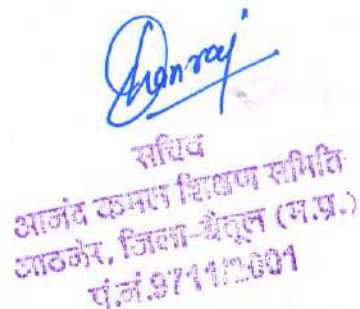 सचिव
आनंद कमल शिक्षण समिति
आठनेर, जिला-बैतूल (म.प्र.)
पं.नं.9711/2001